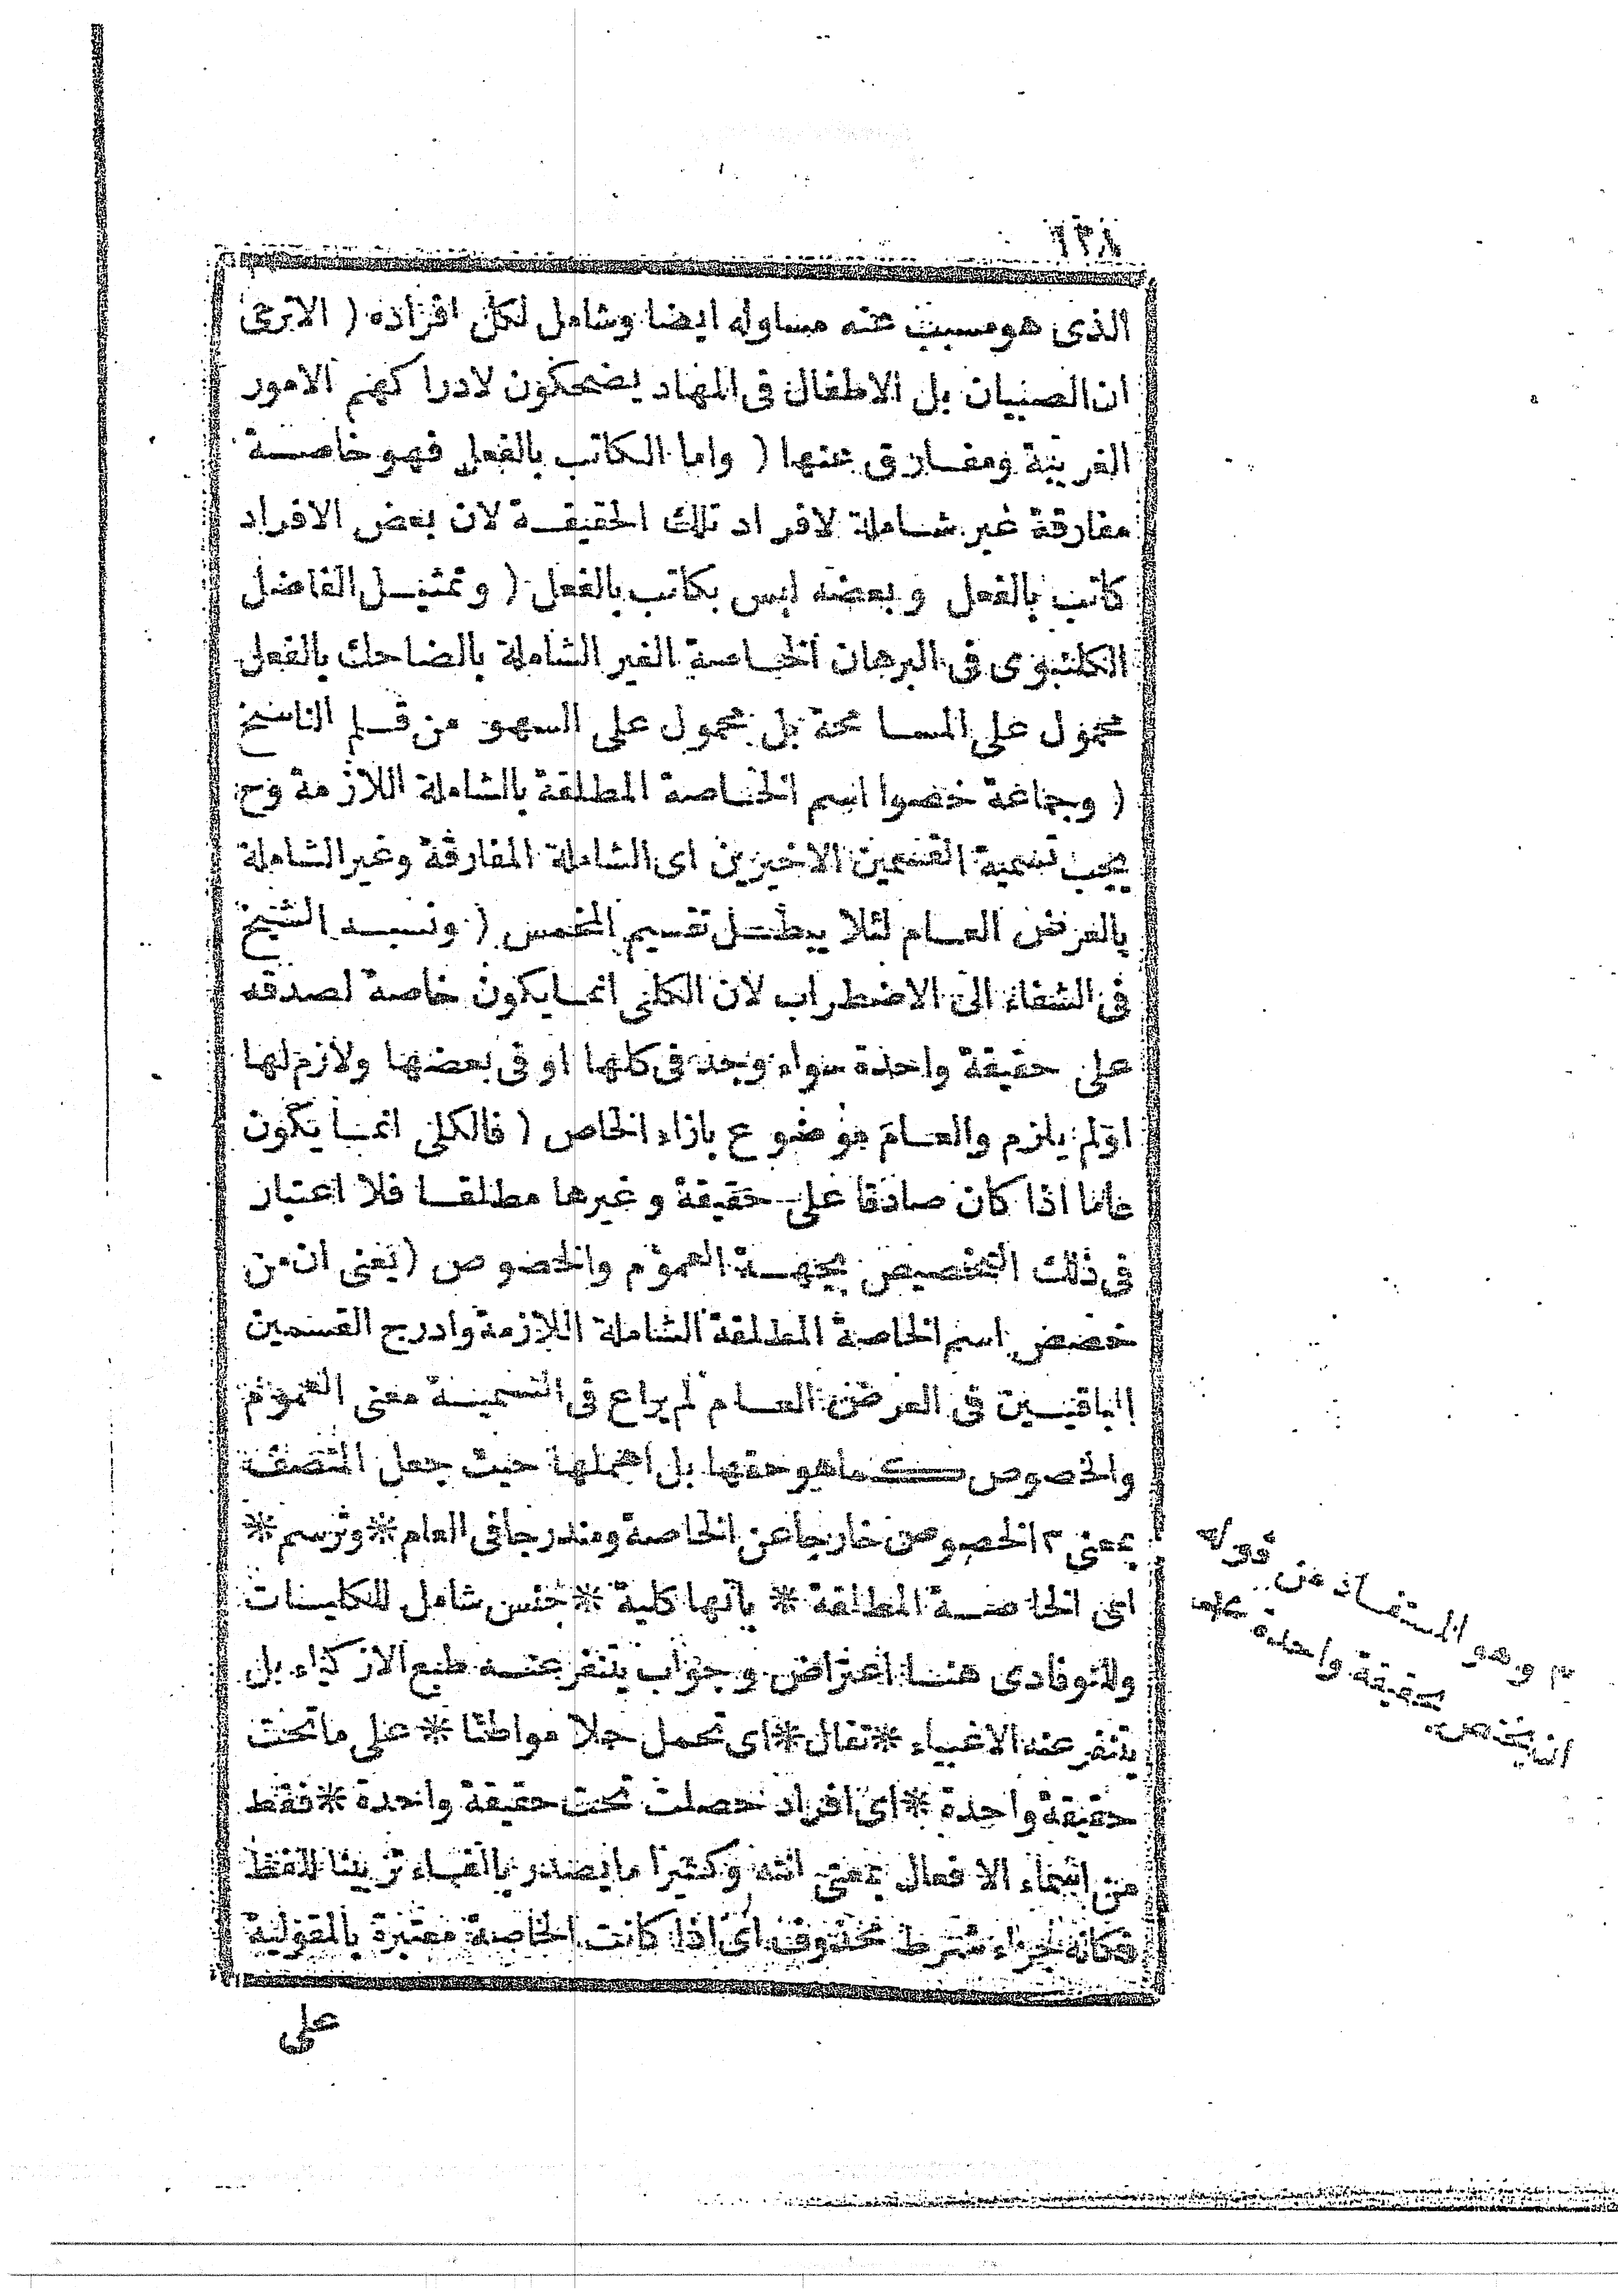 ١٢٨
الذى هو مسبب عنه مساوله ايضا وشامل لكل افراده ( الا ترى
ان الصبيان بل الاطفال فى المهاد يضحكون لادرا كهم الامور
الغريبة ومفارق عنها ( واما الكاتب بالفعل فهو خاصة
مفارقة غير شاملة لافراد تلك الحقيقة لان بعض الافراد
كاتب بالفعل وبعضه ليس بكاتب بالفعل ( وتمثيل الفاضل
الكلنبوى فى البرهان الخاصة الغير الشاملة بالضاحك بالفعل
محمول على المسامحة بل محمول على السهو من قلم الناسخ
( وجماعة خصوا اسم الخاصة المطلقة بالشاملة اللازمة وح
يجب تسمية القسمين الاخيرين اى الشاملة المفارقة وغير الشاملة
بالعرض العام لئلا يبطل تقسيم المخمس ( ونسبه الشيخ
فى الشفاء الى الاضطراب لان الكلى انما يكون خاصة لصدقه
على حقيقة واحدة سواء وجد فى كلها او فى بعضها ولازم لها
اولم يلزم والعام موضوع بازاء الخاص ( فالكلى انما يكون
عاما اذا كان صادقا على حقيقة وغيرها مطلقا فلا اعتبار
فى ذلك التخصيص بجهة العموم والخصوص ( يعنى ان من
خصص اسم الخاصة المطلقة الشاملة اللازمة وادرج القسمين
الباقيين فى العرض العام لم يراع فى التسمية معنى العموم
والخصوص كما هو حقها بل اهملها حيث جعل المتصف
بمعنى ٢ الخصوص خارجا عن الخاصة ومندرجا فى العام * وترسم *
اى الخاصة المطلقة * بانها كلية * جنس شامل للكليات
وللنوفادى هنا اعتراض وجواب يتنفر عنه طبع الازكياء بل
يتنفر عنه الاغبياء * تقال * اى تحمل حملا مواطئا * على ما تحت
حقيقة واحدة * اى افراد حصلت تحت حقيقة واحدة * فقط
من اسماء الافعال بمعنى انته وكثيرا ما يصدر بالفاء تزيينا للفظ
فكانه جزاء شرط محذوف اى اذا كانت الخاصة معتبرة بالمقولية
على
٢ وهو المستفاد من قوله
ان يختص بحقيقة واحدة